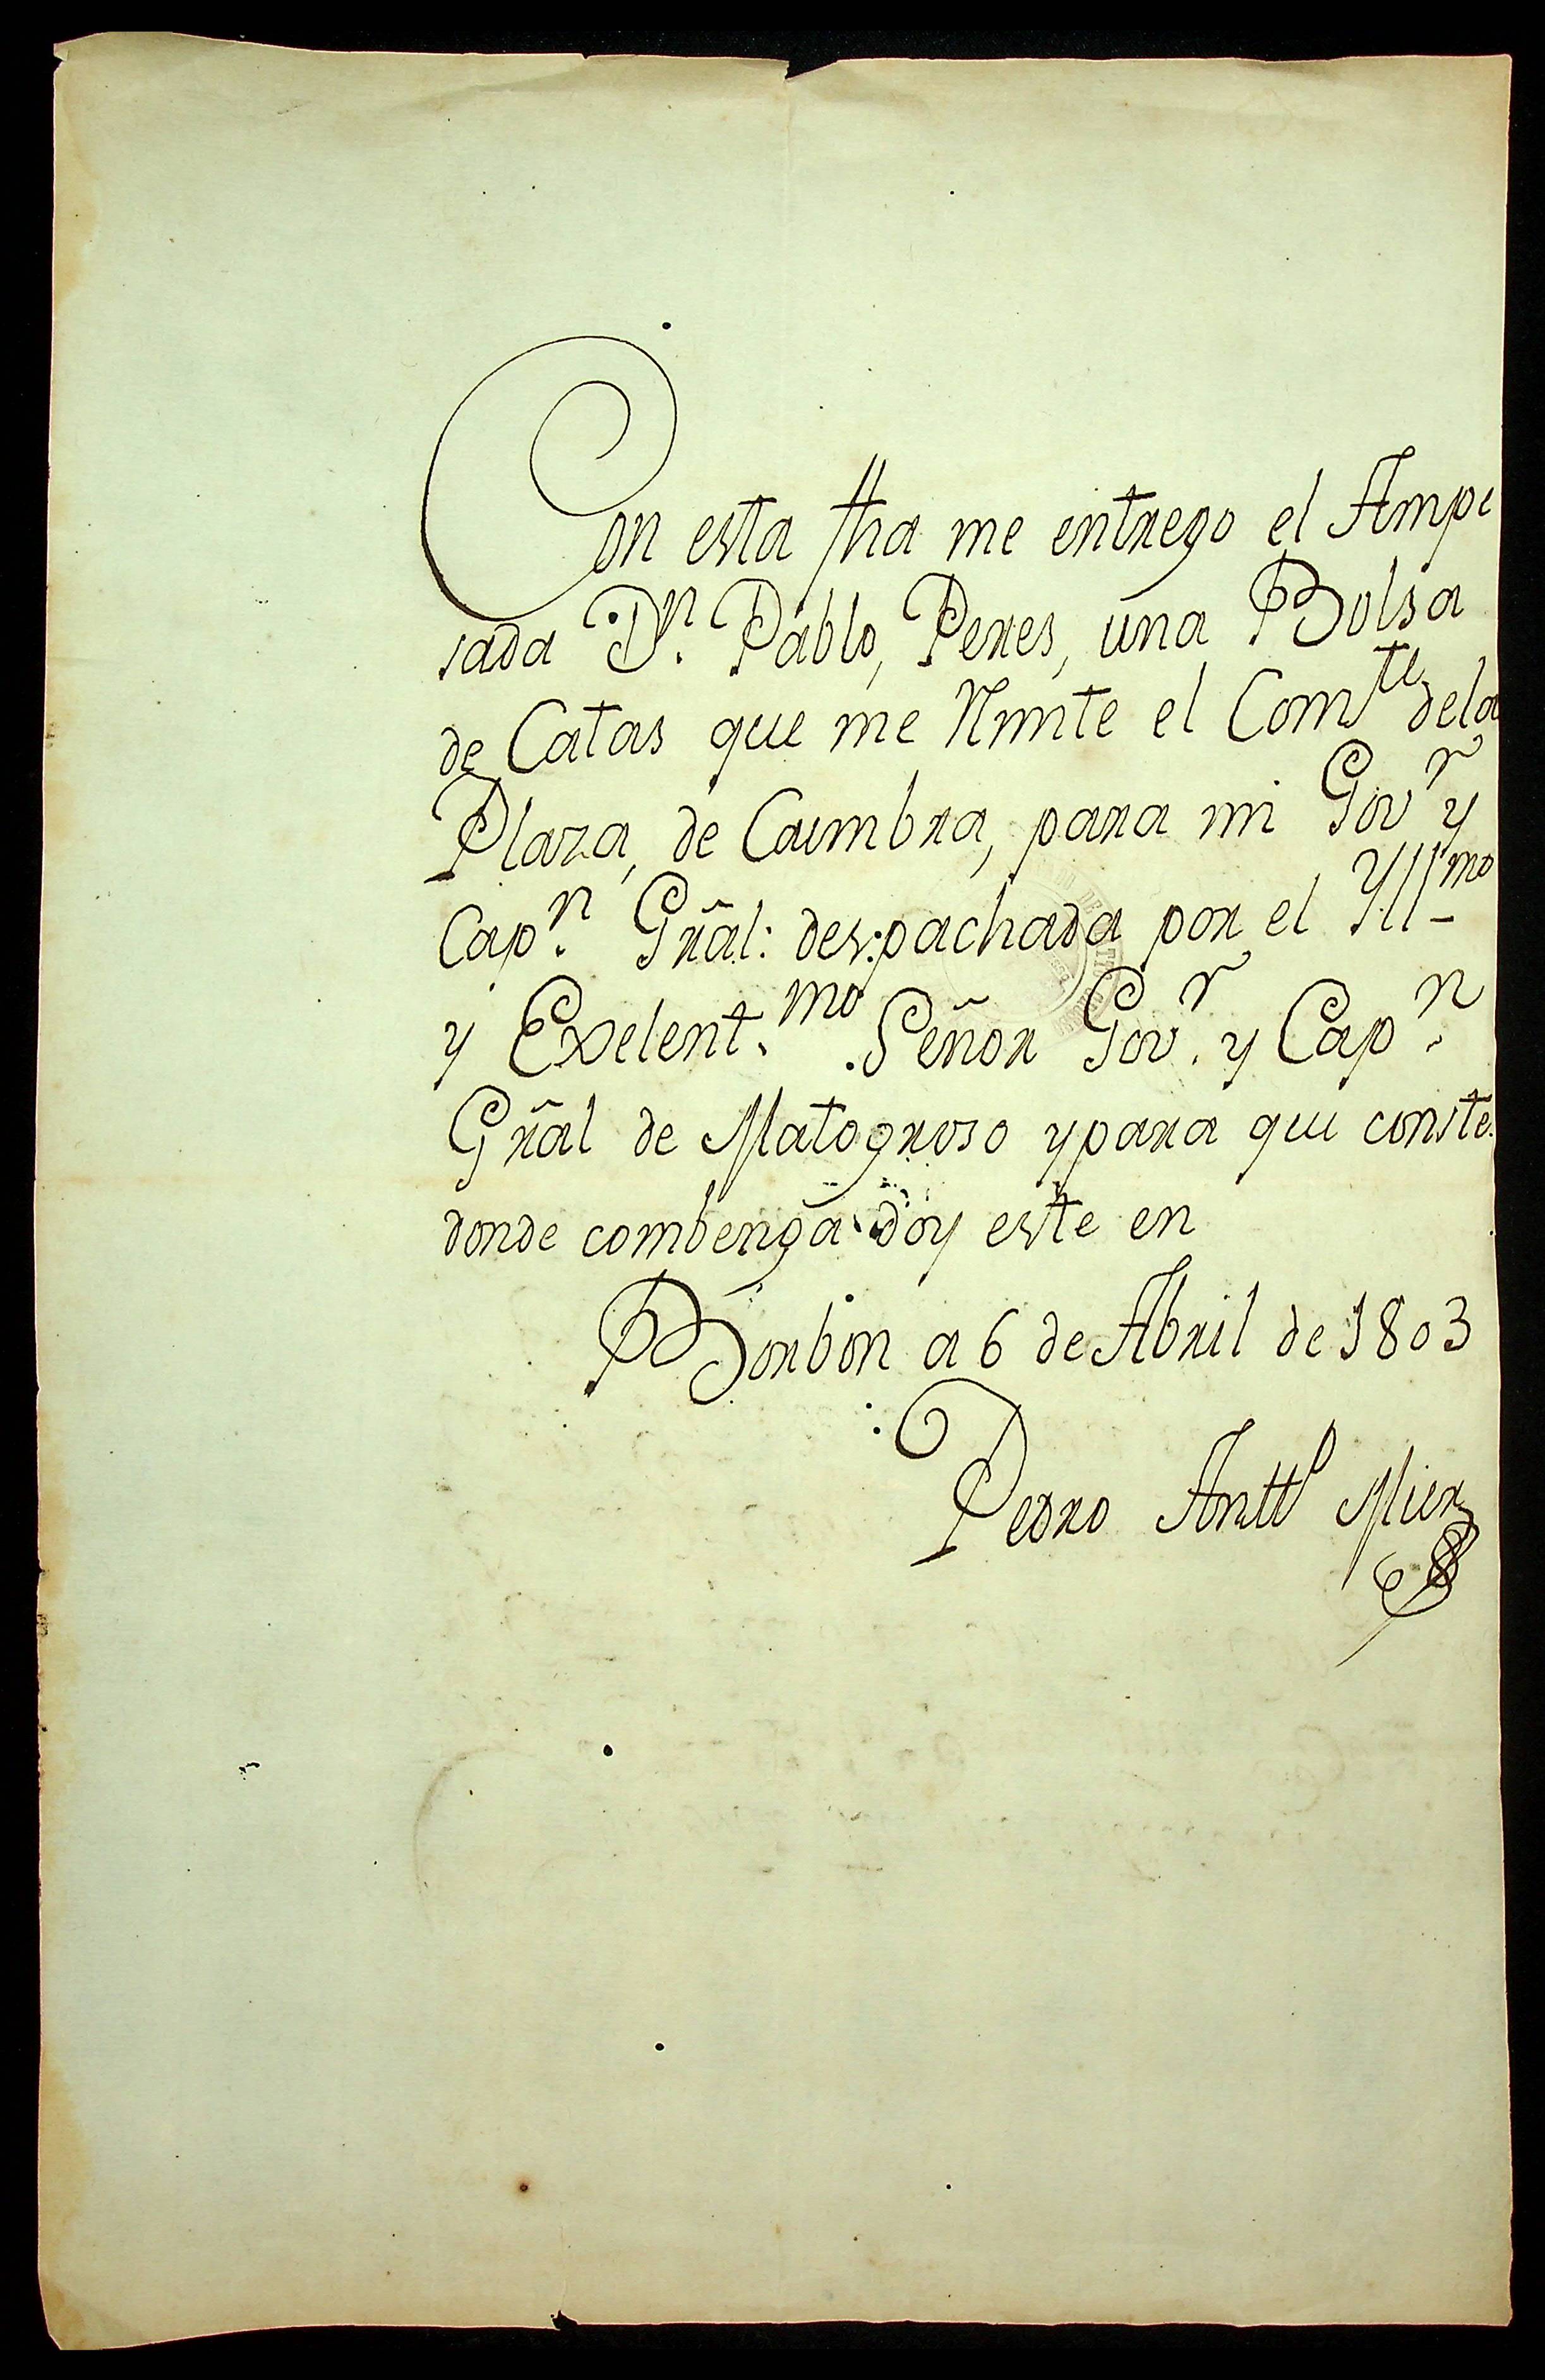 Con esta fha me entrego el Ampe
sada Dn. Pablo, Peres, una Bolsa
de Catas que me Rimite el Comte dela
Plaza, de Cuimbra, para mi Govr y
Capn. Gñral: des:pachada por el Yllmo
y Exelent.mo Señor Govr. y Capn.
Gñral de Matogroso ypara que conste
donde combenga doy este en
Borbon a 6 de Abril de 1803
Pedro Antto Mier